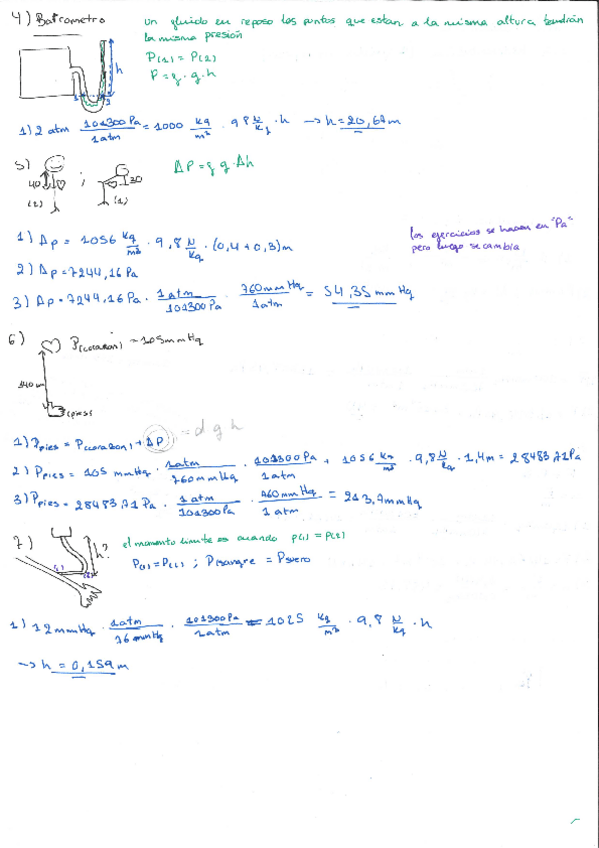 4) Barometro
un fluido en reposo los puntos que estan a la misma altura tendrán
la misma presión
P(1) = P(2)
P = ρ · g · h
h
1 2
1) 2 atm · 101300 Pa / 1 atm = 1000 kg/m³ · 9'8 N/kg · h → h = 20,67 m
5)
ΔP = ρ g · Δh
40 ; 30
(2) (1)
1) Δp = 1056 kg/m³ · 9,8 N/kg · (0,4 + 0,3) m
los ejercicios se hacen en "Pa"
pero luego se cambia
2) Δp = 7244,16 Pa
3) Δp = 7244.16 Pa · 1 atm / 101300 Pa · 760 mm Hg / 1 atm = 54,35 mm Hg
6)
P(corazon) = 105 mm Hg
140
(pies)
1) Ppies = P(corazon) + ΔP = d g h
2) Ppies = 105 mmHg · 1 atm / 760 mmHg · 101300 Pa / 1 atm + 1056 kg/m³ · 9,8 N/kg · 1,4 m = 28483,71 Pa
3) Ppies = 28483,71 Pa · 1 atm / 101300 Pa · 760 mm Hg / 1 atm = 213,7 mm Hg
7)
h?
el momento limite es cuando P(1) = P(2)
P(1) = P(2) ; Psangre = Psuero
1) 12 mm Hg · 1 atm / 76 mm Hg · 101300 Pa / 1 atm = 1025 kg/m³ · 9,8 N/kg · h
→ h = 0,159 m